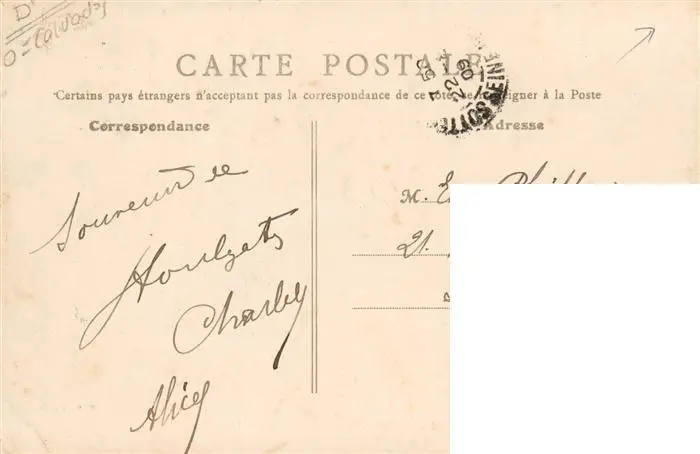 Dt
O = Calvados
CARTE POSTALE
Certains pays étrangers n'acceptant pas la correspondance de ce côté, se
à la Poste
Correspondance
Adresse
Souvenir de
Houlgate
Charley
Alice
M. E
21.
7 53
22
09
SOTTE
SEINE